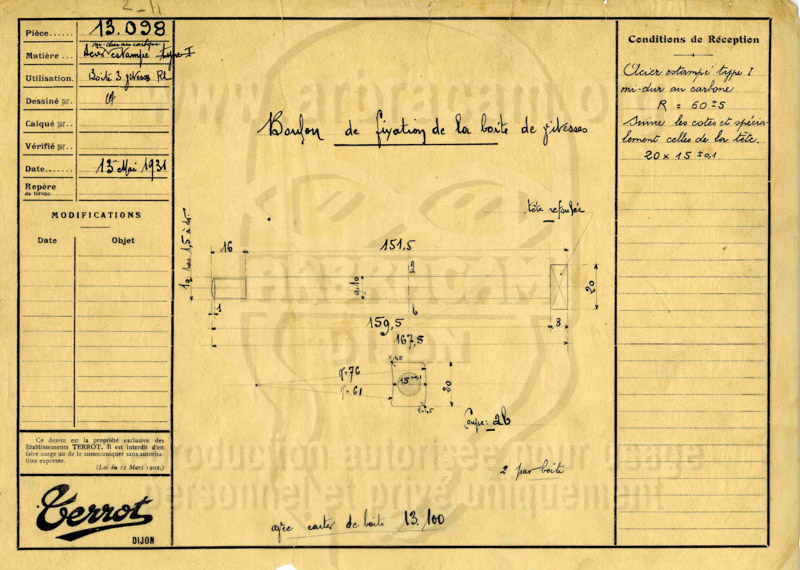 2-11
Pièce...... 13.098
Matière... mi-dur au carbone
Acier estampé type I
Utilisation. Boite 3 vitesses RL
Dessiné par.
Calqué par..
Vérifié par..
Date....... 13 Mai 1931
Repère
de tirage.
MODIFICATIONS
Date Objet
Ce dessin est la propriété exclusive des
Etablissements TERROT. Il est interdit d'en
faire usage ou de le communiquer sans autorisa-
tion expresse.
(Loi du 11 Mars 1902.)
Terrot
DIJON
Boulon de fixation de la boite de vitesses
tête refoulée
16
151,5
1
159,5
8
167,5
20
r=76
r=61
15
20
Coupe: ab
2 par boite
avec carter de boite 13.100
Conditions de Réception
Acier estampé type I
mi-dur au carbone
R = 60 ±5
Suivre les cotes et spécia-
lement celles de la tête.
20 x 15 ±0,1
www.arbracam.o
ARBRACAM
DIJON
reproduction autorisée pour usage
personnel et privé uniquement